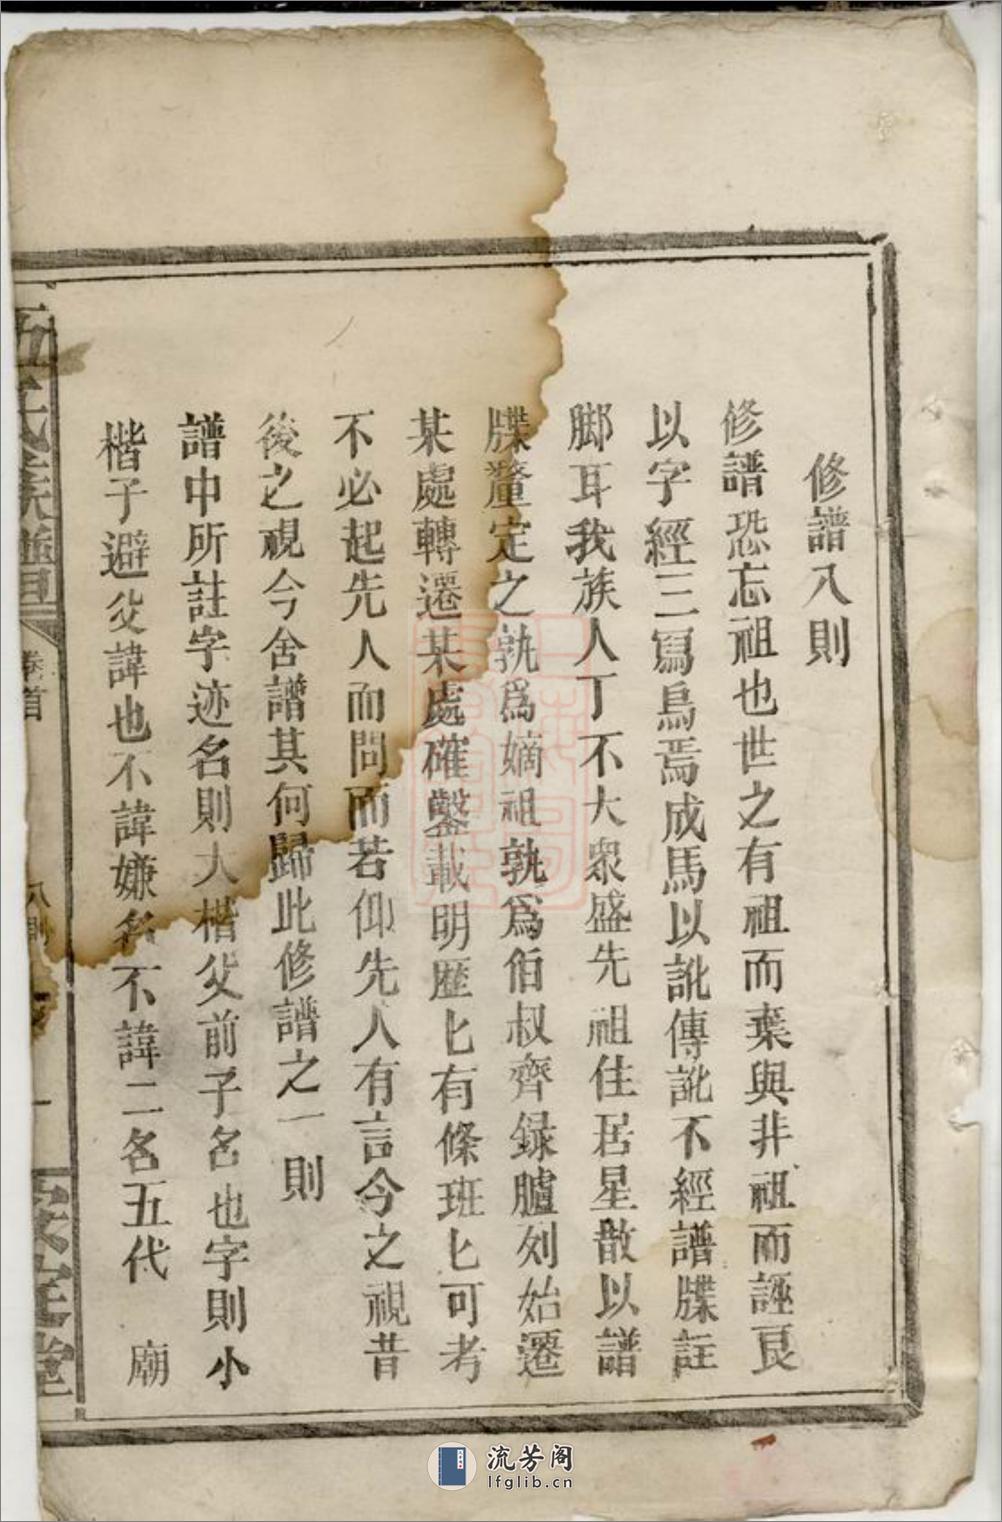 修譜八則
修譜恐忘祖也世之有祖而棄與非祖而誣良
以字經三寫烏焉成馬以訛傳訛不經譜牒註
脚耳我族人丁不大衆盛先祖住居星散以譜
牒釐定之孰爲嫡祖孰爲伯叔齊録臚列始遷
某處轉遷某處確鑿載明歷匕有條班匕可考
不必起先人而問而若仰先人有言今之視昔
後之視今舍譜其何歸此修譜之一則
譜中所註字迹名則大楷父前子名也字則小
楷子避父諱也不諱嫌名不諱二名五代 廟
氏族譜
卷首
八則
一
安定堂
流芳阁
lfglib.cn